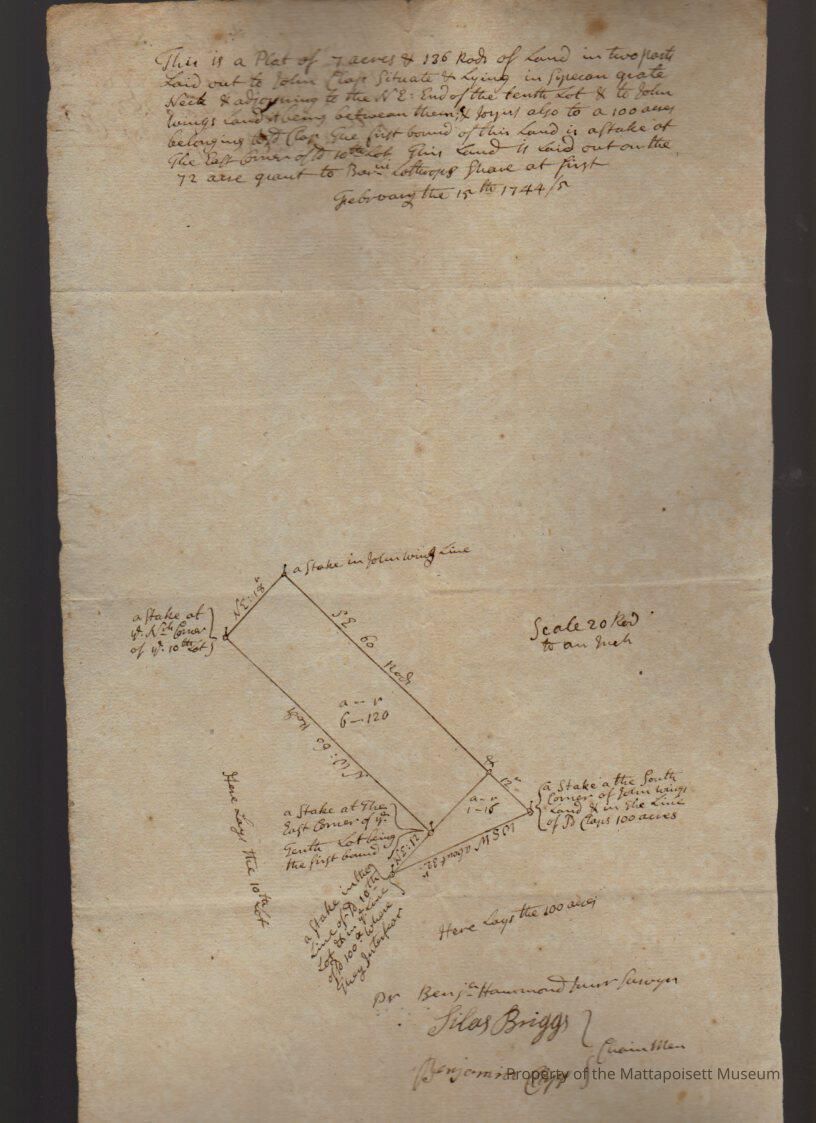 This is a Plat of 7 acres & 136 Rods of Land in two parts
Laid out to John Clap Situate & Lying in Sipecan grate
Neck & adjoyning to the N:E: End of the tenth Lot & to John
Wings Land & being between them, & Joyns also to a 100 acres
belonging to sd Clap The first bound of this Land is a stake at
The East Corner of sd 10th Lot This Land Is Laid out on the
72 acre grant to Lothrops Share at first
February the 15th 1744/5
a Stake in John Wing Line
N:E: 18r
a Stake at
ye: Nth Corner
of ye: 10th Lot
SE 60 Rods
Scale 20 Rod
to an Inch
a - r
6 - 120
N:W: 60 Rods
a - r
1 - 16
12r
a Stake at the South
Corner of John Wings
Land & in the Line
of sd Claps 100 acres
a Stake at The
East Corner of ye:
Tenth Lot being
the first bound
N:E: 12
W about 32r
Here Lays the 10th Lot
a Stake in the
Line of sd 10th
Lot & in ye Line
of sd 100 a where
they Interfear
Here Lays the 100 acres
Pr Benja Hammond Junr Survyr
Silas Briggs
Benjamin Clap
Chain Men
Property of the Mattapoisett Museum